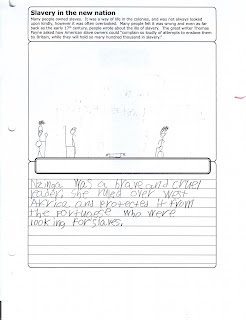 Slavery in the new nation
Many people owned slaves. It was a way of life in the colonies, and was not always looked
upon kindly, however it was often overlooked. Many people felt it was wrong and even as far
back as the early 17th century, people wrote about the ills of slavery. The great writer Thomas
Paine asked how American slave owners could "complain so loudly of attempts to enslave them
to Britain, while they still hold so many hundred thousand in slavery."
Nzinga was a brave and cruel
leader. she ruled over west
Africa and protected it from
the portuguese who were
looking for slaves.